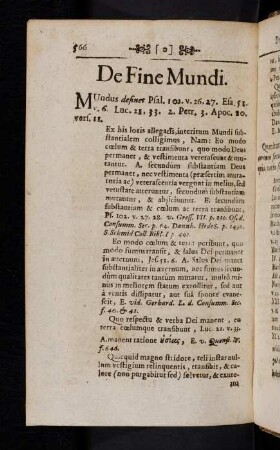 566 [0]
De Fine Mundi.
MUndus desinet Psal. 102. v. 26. 27. Esa. 51.
v. 6. Luc. 21. 33. 2. Petr. 3. Apoc. 20.
vers. 11.
Ex his locis allegatis, interitum Mundi sub-
stantialem colligimus, Nam: Eo modo
cœlum & terra transibunt, quo modo Deus
permanet, & vestimenta veterascunt & mu-
tantur. A. secundum substantiam Deus
permanet, nec vestimenta (præsertim muta-
toria ac) veterascentia vergunt in melius, sed
vetustate atteruntur, secundum substantiam
mutantur, & abjiciuntur. E. secundum
substantiam & cœlum ac terra transibunt,
Ps. 102. v. 27. 28. v.
Eo modo cœlum & terra peribunt, quo
modo fumus transit, & salus Dei permanet
in æternum, Jes. 51. 6. A. Salus Dei manet
substantialiter in æternum, nec fumus secun-
dum qualitates tantum mutatur, multò mi-
nus in meliorem statum extollitur, sed aut
à ventis dissipatur, aut suâ sponte evane-
scit, E. vid. Gerhard. L. d. Consumm. Sec.
f. 40. & 41.
Quo respectu & verba Dei manent, cæ-
tera cœlumque transibunt, Luc. 21. v. 33.
A. manent ratione E. v.
f. 646.
Quicquid magno stridore, teli instar nul-
lum vestigium relinquentis, transibit, & ca-
lore (non purgabitur sed) solvetur, & exure-
tur